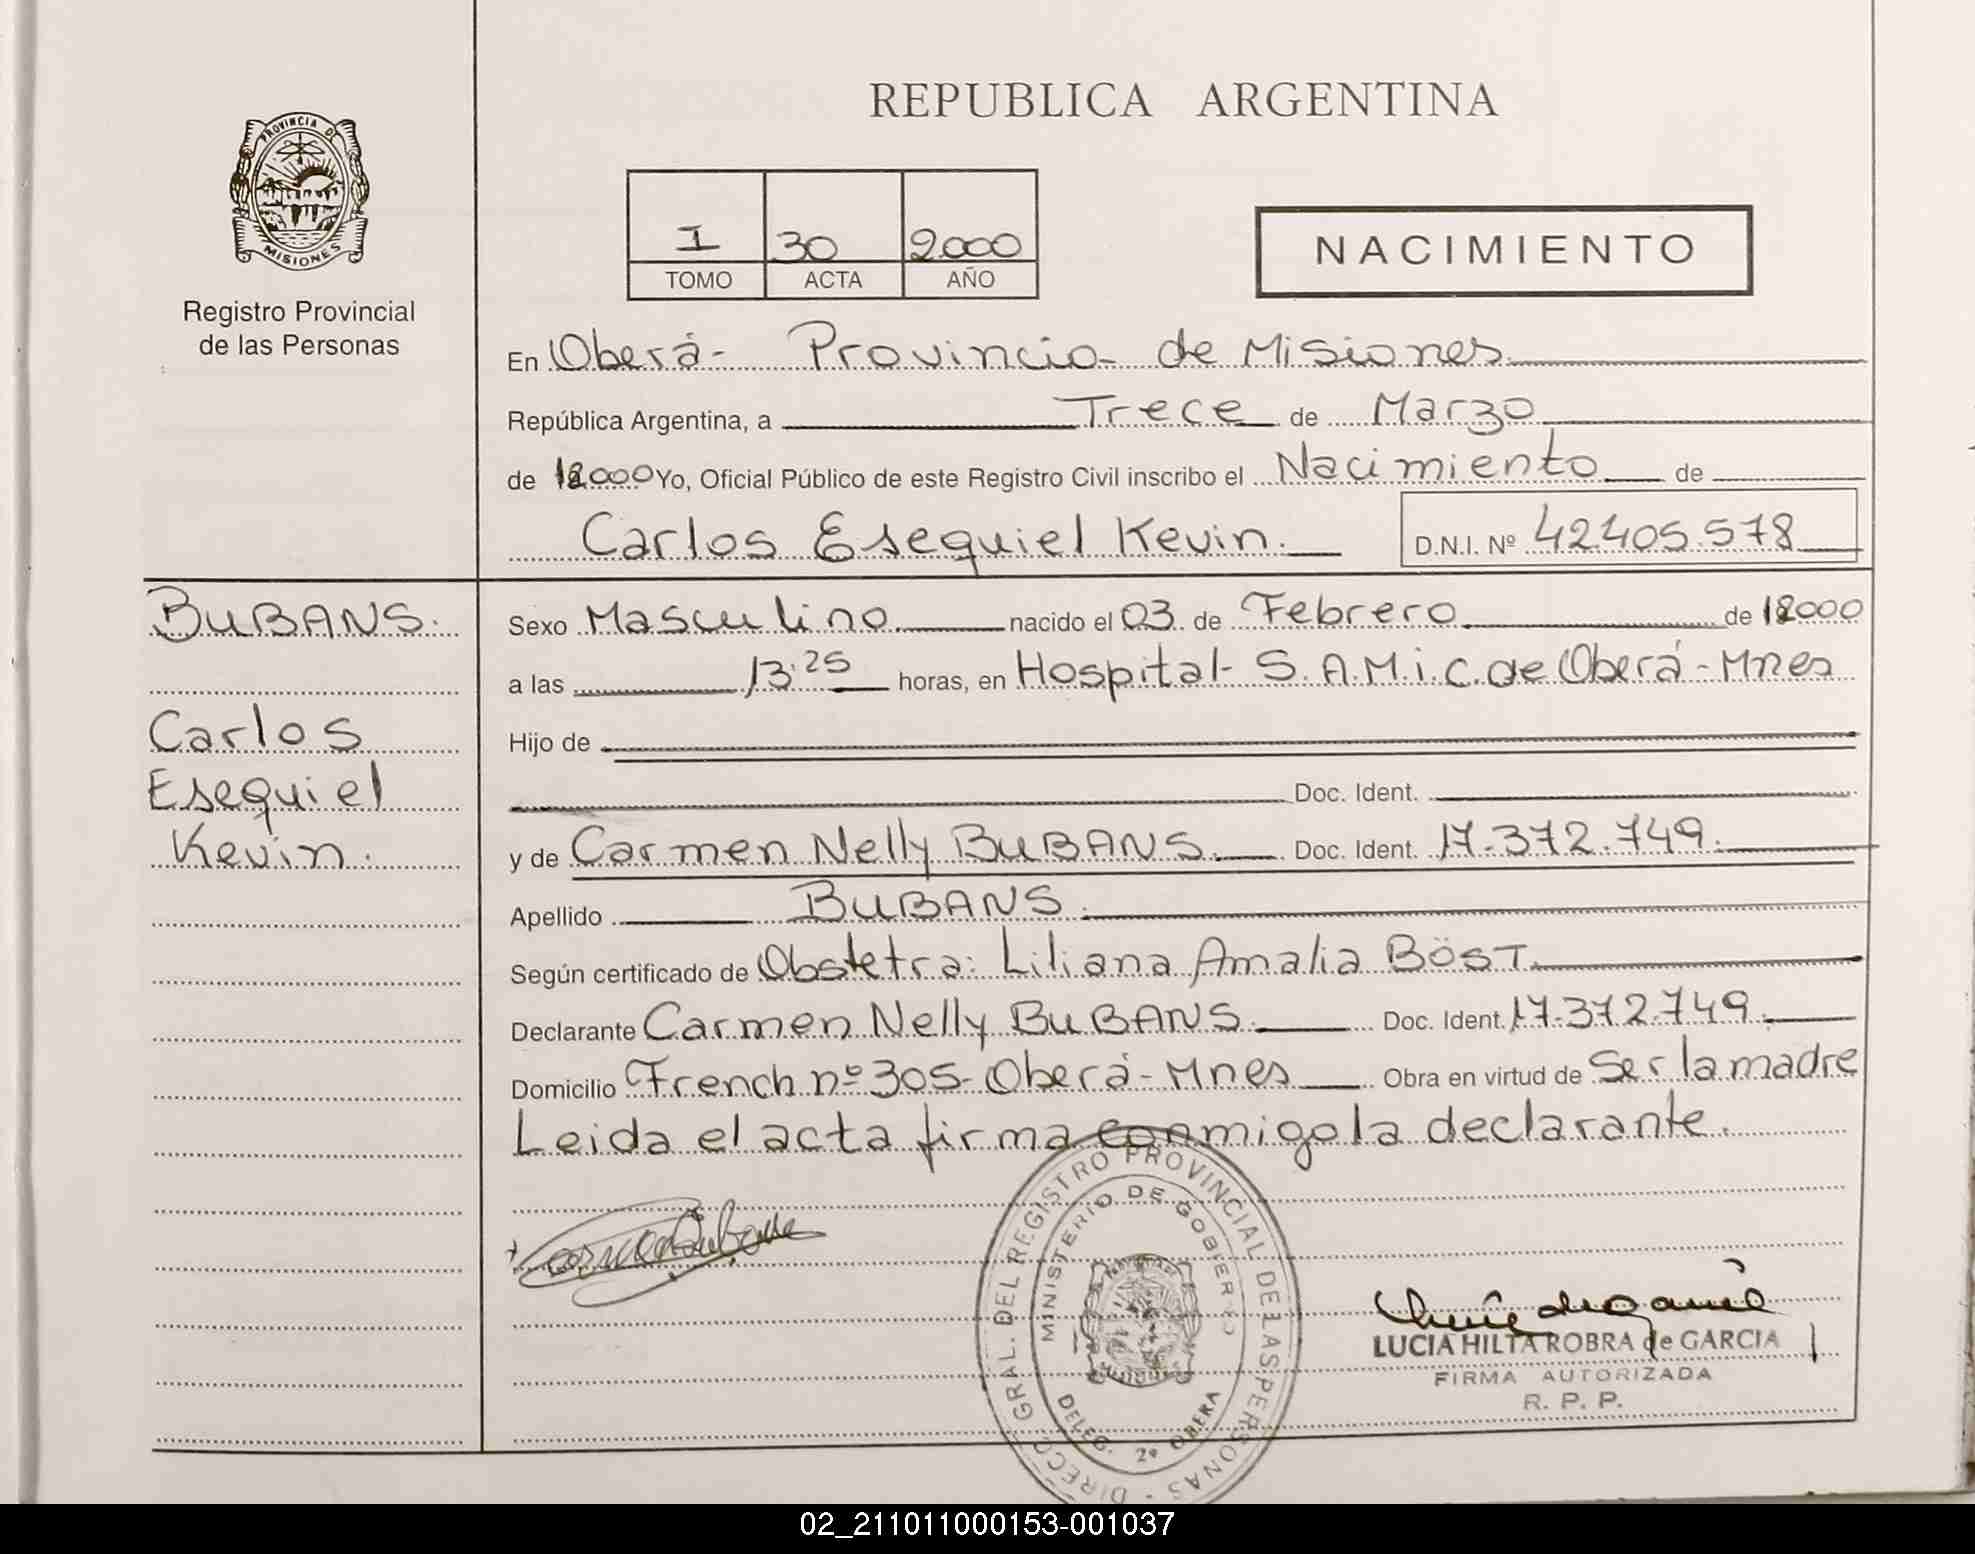 PROVINCIA DE
MISIONES
Registro Provincial
de las Personas
REPUBLICA ARGENTINA
I 30 2.000
TOMO ACTA AÑO
NACIMIENTO
En Oberá- Provincia de Misiones
República Argentina, a Trece de Marzo
de 2000 Yo, Oficial Público de este Registro Civil inscribo el Nacimiento de
Carlos Esequiel Kevin. D.N.I. Nº 42.405.578
BUBANS.
Carlos
Esequiel
Kevin.
Sexo Masculino nacido el 03 de Febrero de 2000
a las 13:25 horas, en Hospital- S.A.M.i.C. de Oberá-Mnes
Hijo de
Doc. Ident.
y de Carmen Nelly BUBANS. Doc. Ident. 17.372.749.
Apellido BUBANS.
Según certificado de Obstetra: Liliana Amalia BÖST.
Declarante Carmen Nelly BUBANS. Doc. Ident. 17.372.749.
Domicilio French nº 305- Oberá- Mnes Obra en virtud de Ser la madre
Leida el acta firma conmigo la declarante.
DIRECC. GRAL. DEL REGISTRO PROVINCIAL DE LAS PERSONAS -
MINISTERIO DE GOBIERNO
DELEG. 2º OBERA
LUCIA HILTA ROBRA de GARCIA
FIRMA AUTORIZADA
R. P. P.
02_211011000153-001037